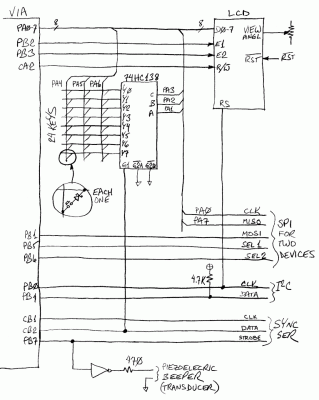 VIA
LCD
PA0-7
8
8
D0-7
VIEW
ANGL
PB2
E1
PB3
E2
RST
RST
CA2
R/W
74HC138
PA4
PA5
PA6
Y0
Y1
Y2
Y3
Y4
Y5
Y6
Y7
C
B
A
PA3
PA2
PA1
RS
24 KEYS
E1
E2A
E2B
EACH
ONE
PA0
CLK
PA7
MISO
PB1
MOSI
PB5
SEL1
PB6
SEL2
SPI
FOR
TWO
DEVICES
4.7K
PB0
CLK
PB4
DATA
I²C
CB1
CLK
CB2
DATA
PB7
STROBE
SYNC
SER
470
PIEZOELECRIC
BEEPER
(TRANSDUCER)